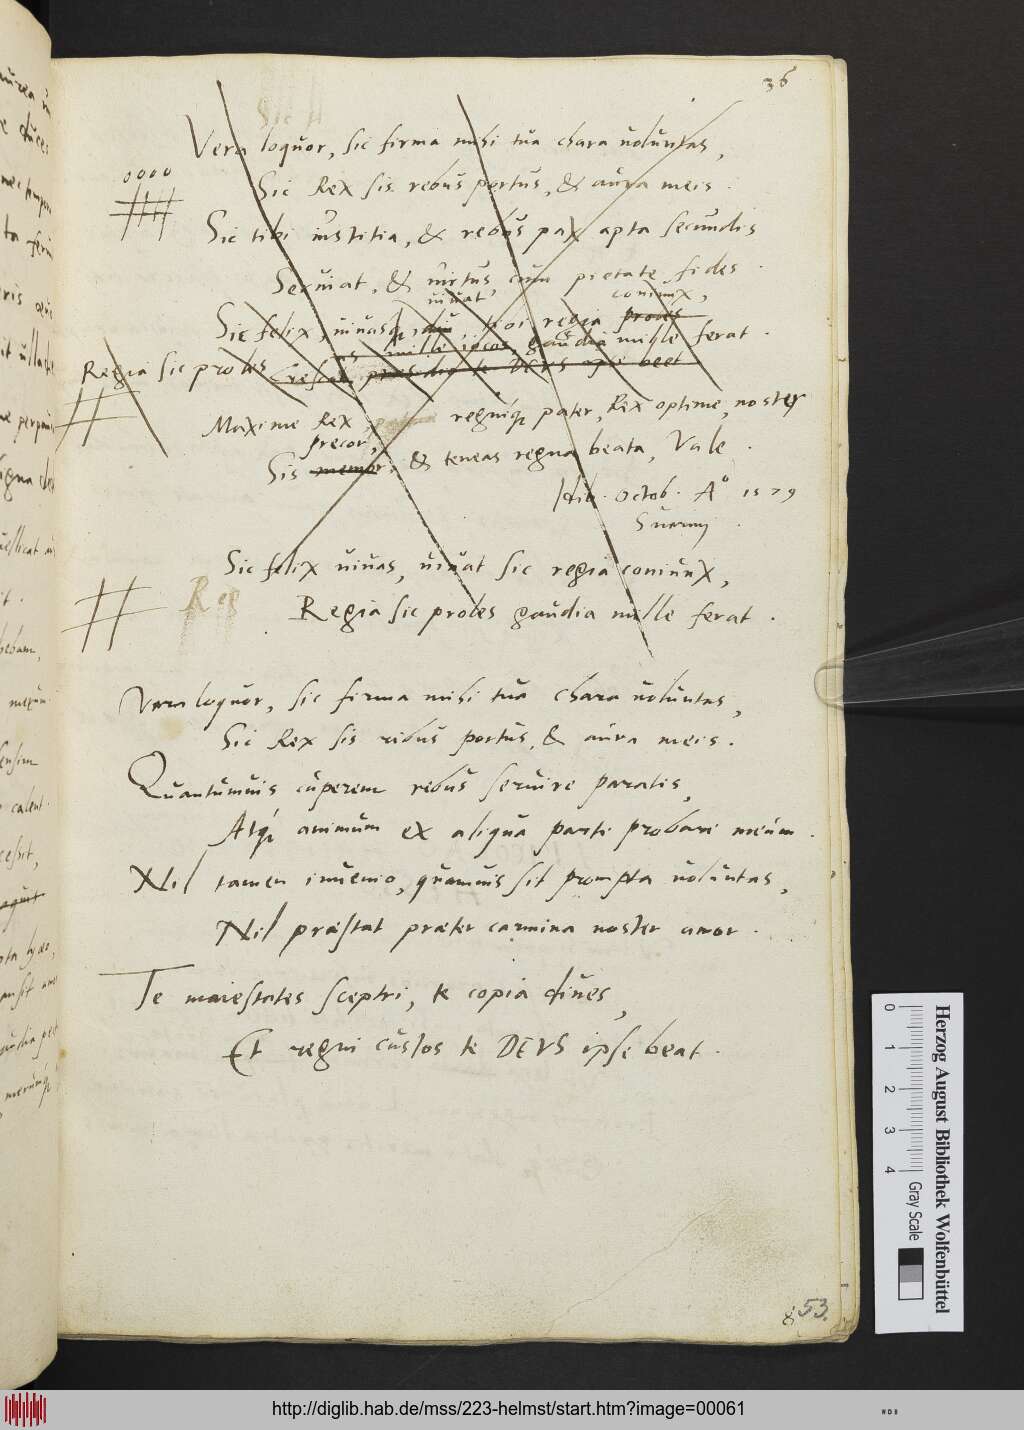 36
Vera loquor, sic firma mihi tua chara uoluntas,
Sic Rex sis rebus portus, & aura meis.
oooo
Sic tibi iustitia, & rebus pax apta secundis
Seruiat, & uirtus, cum pietate fides.
uiuat coniunx,
Sic felix uiuasq, diu, tibi regia proles
mille iocos, gaudia mille ferat.
Regia sic proles Crescat, DEVS ope beet
Maxime Rex, patriae regniq pater, Rex optime, noster
precor,
Sis memor, & teneas regna beata, Vale.
Idib. Octob. A° 1579
Suerini.
Sic felix uiuas, uiuat sic regia coniunx,
Reg
Regia sic proles gaudia mille ferat.
Vera loquor, sic firma mihi tua chara uoluntas,
Sic Rex sis rebus portus, & aura meis.
Quantumuis cuperem rebus seruire paratis,
Atq animum ex aliqua parte probare meum.
Nil tamen inuenio, quamuis sit prompta uoluntas,
Nil præstat præter carmina noster amor.
Te maiestates sceptri, te copia diues,
Et regni custos te DEVS ipse beat.
53.
Herzog August Bibliothek Wolfenbüttel
0 1 2 3 4 Gray Scale
http://diglib.hab.de/mss/223-helmst/start.htm?image=00061